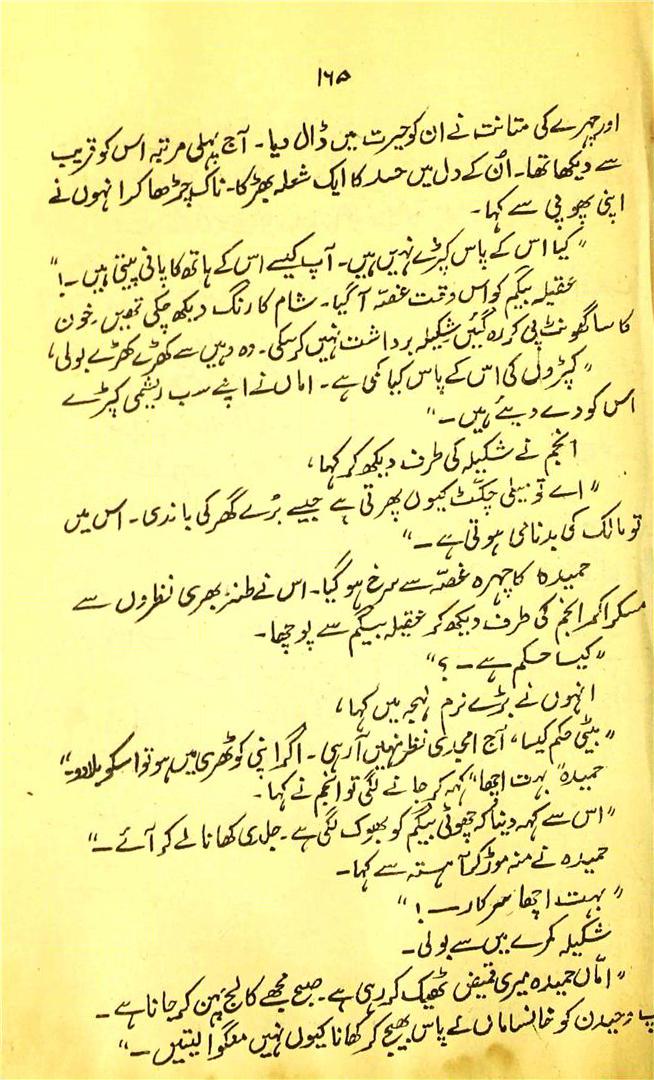 ۱۶۵
اور چہرے کی متانت نے ان کو حیرت میں ڈال دیا۔ آج پہلی مرتبہ اس کو قریب
سے دیکھا تھا۔ اُن کے دل میں حسد کا ایک شعلہ بھڑکا۔ ناک چڑھا کر انہوں نے
اپنی پھوپی سے کہا۔
"کیا اس کے پاس کپڑے نہیں ہیں۔ آپ کیسے اس کے ہاتھ کا پانی پیتی ہیں۔!"
عقیلہ بیگم کو اس وقت غصّہ آگیا۔ شام کا رنگ دیکھ چکی تھیں۔ خون
کا سا گھونٹ پی کر رہ گئیں شکیلہ برداشت نہیں کرسکی۔ وہ وہیں سے کھڑے کھڑے بولی،
"کپڑوں کی اس کے پاس کیا کمی ہے۔ اماں نے اپنے سب ریشمی کپڑے
اس کو دے دیئے ہیں۔"
انجم نے شکیلہ کی طرف دیکھ کر کہا،
"اے تو میلی چکّٹ کیوں پھرتی ہے جیسے بُرے گھر کی باندی۔ اس میں
تو مالک کی بدنامی ہوتی ہے۔"
حمیدہ کا چہرہ غصّہ سے سرخ ہو گیا۔ اس نے طنز بھری نظروں سے
مسکرا کر انجم کی طرف دیکھ کر عقیلہ بیگم سے پوچھا۔
"کیسا حکم ہے۔؟"
انہوں نے بڑے نرم لہجہ میں کہا،
"بیٹی حکم کیسا، آج امجدی نظر نہیں آرہی۔ اگر اپنی کوٹھری میں ہو تو اسکو بلادو۔"
حمیدہ "بہت اچھا" کہہ کر جانے لگی تو انجم نے کہا۔
"اس سے کہہ دینا کہ چھوٹی بیگم کو بھوک لگی ہے۔ جلدی کھانا لے کر آئے۔"
حمیدہ نے منہ موڑ کر آہستہ سے کہا۔
"بہت اچھا سرکار۔!"
شکیلہ کمرے میں سے بولی۔
"امّاں حمیدہ میری قمیض ٹھیک کر رہی ہے۔ صبح مجھے کالج پہن کر جانا ہے۔
آپ وحیدن کو خانساماں کے پاس بھیج کر کھانا کیوں نہیں منگوا لیتیں۔"